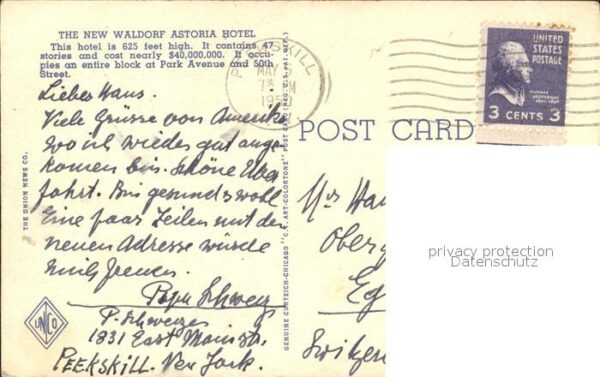 THE NEW WALDORF ASTORIA HOTEL
This hotel is 625 feet high. It contains 47
stories and cost nearly $40,000,000. It occu-
pies an entire block at Park Avenue and 50th
Street.
Lieber Hans.
Viele Grüsse von Amerika
wo ich wieder gut ange-
komen bin. Schöne Über
fahrt. Bin gesund & wohl
Eine paar Zeilen mit der
neuen Adresse würde
mich freuen.
Papa Schweiz
P. Schweizer
1831 East Main St.
PEEKSKILL. New York.
THE UNION NEWS CO.
UNCO
GENUINE CURTEICH-CHICAGO "C.T. ART-COLORTONE" POST CARD (REG. U.S. PAT. OFF.)
PEEKSKILL
MAY
7 PM
POST CARD
UNITED
STATES
POSTAGE
THOMAS
JEFFERSON
3 CENTS 3
Mrs Hau
Oberg
Eg
Switzer
privacy protection
Datenschutz